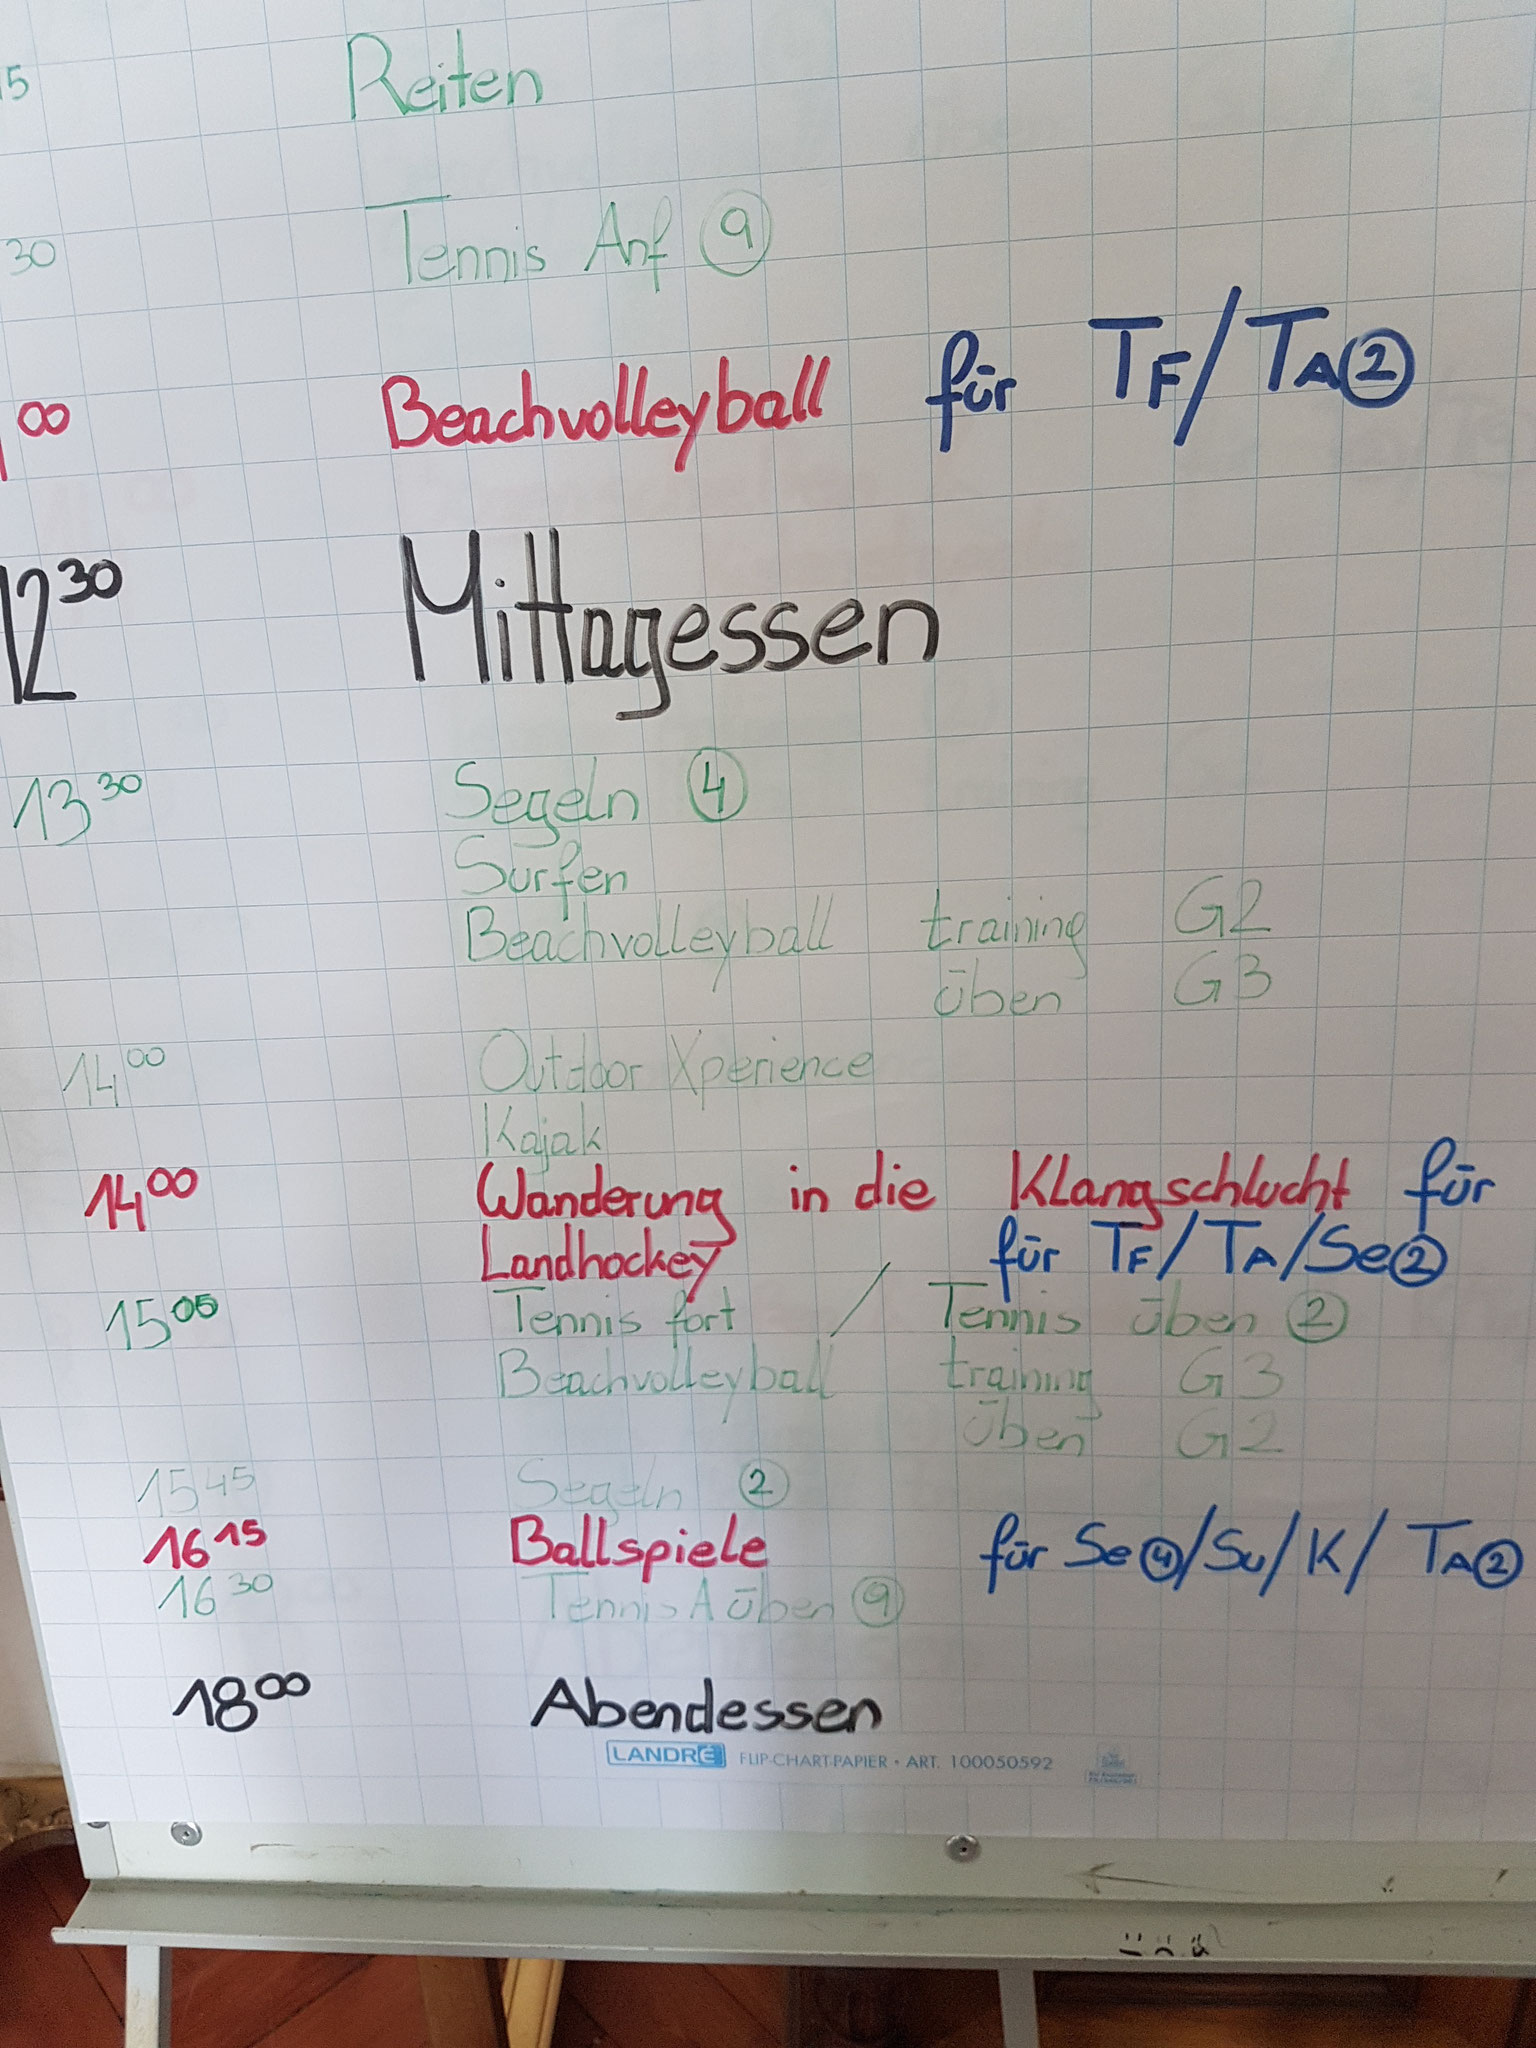 15 Reiten
30 Tennis Anf 9
00 Beachvolleyball für TF/TA 2
12 30 Mittagessen
13 30 Segeln 4
Surfen
Beachvolleyball training G2
üben G3
14 00 Outdoor Xperience
Kajak
14 00 Wanderung in die Klangschlucht für
Landhockey für TF/TA/Se 2
15 05 Tennis fort / Tennis üben 2
Beachvolleyball training G3
üben G2
15 45 Segeln 2
16 15 Ballspiele für Se 4/Su/K/TA 2
16 30 Tennis A üben 9
18 00 Abendessen
LANDRÉ FLIP-CHART-PAPIER • ART. 100050592